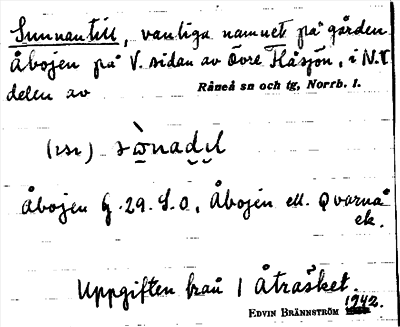 Sunnantill, vanliga namnet på gården
Åbojen på V. sidan av Övre Flåsjön, i N.V.
delen av Råneå sn och tg, Norrb. l.
Åbojen G. 29. S.O. Åbojen ell. Qvarnå
ek.
Uppgiften från / Åträsket.
1942.
EDVIN BRÄNNSTRÖM